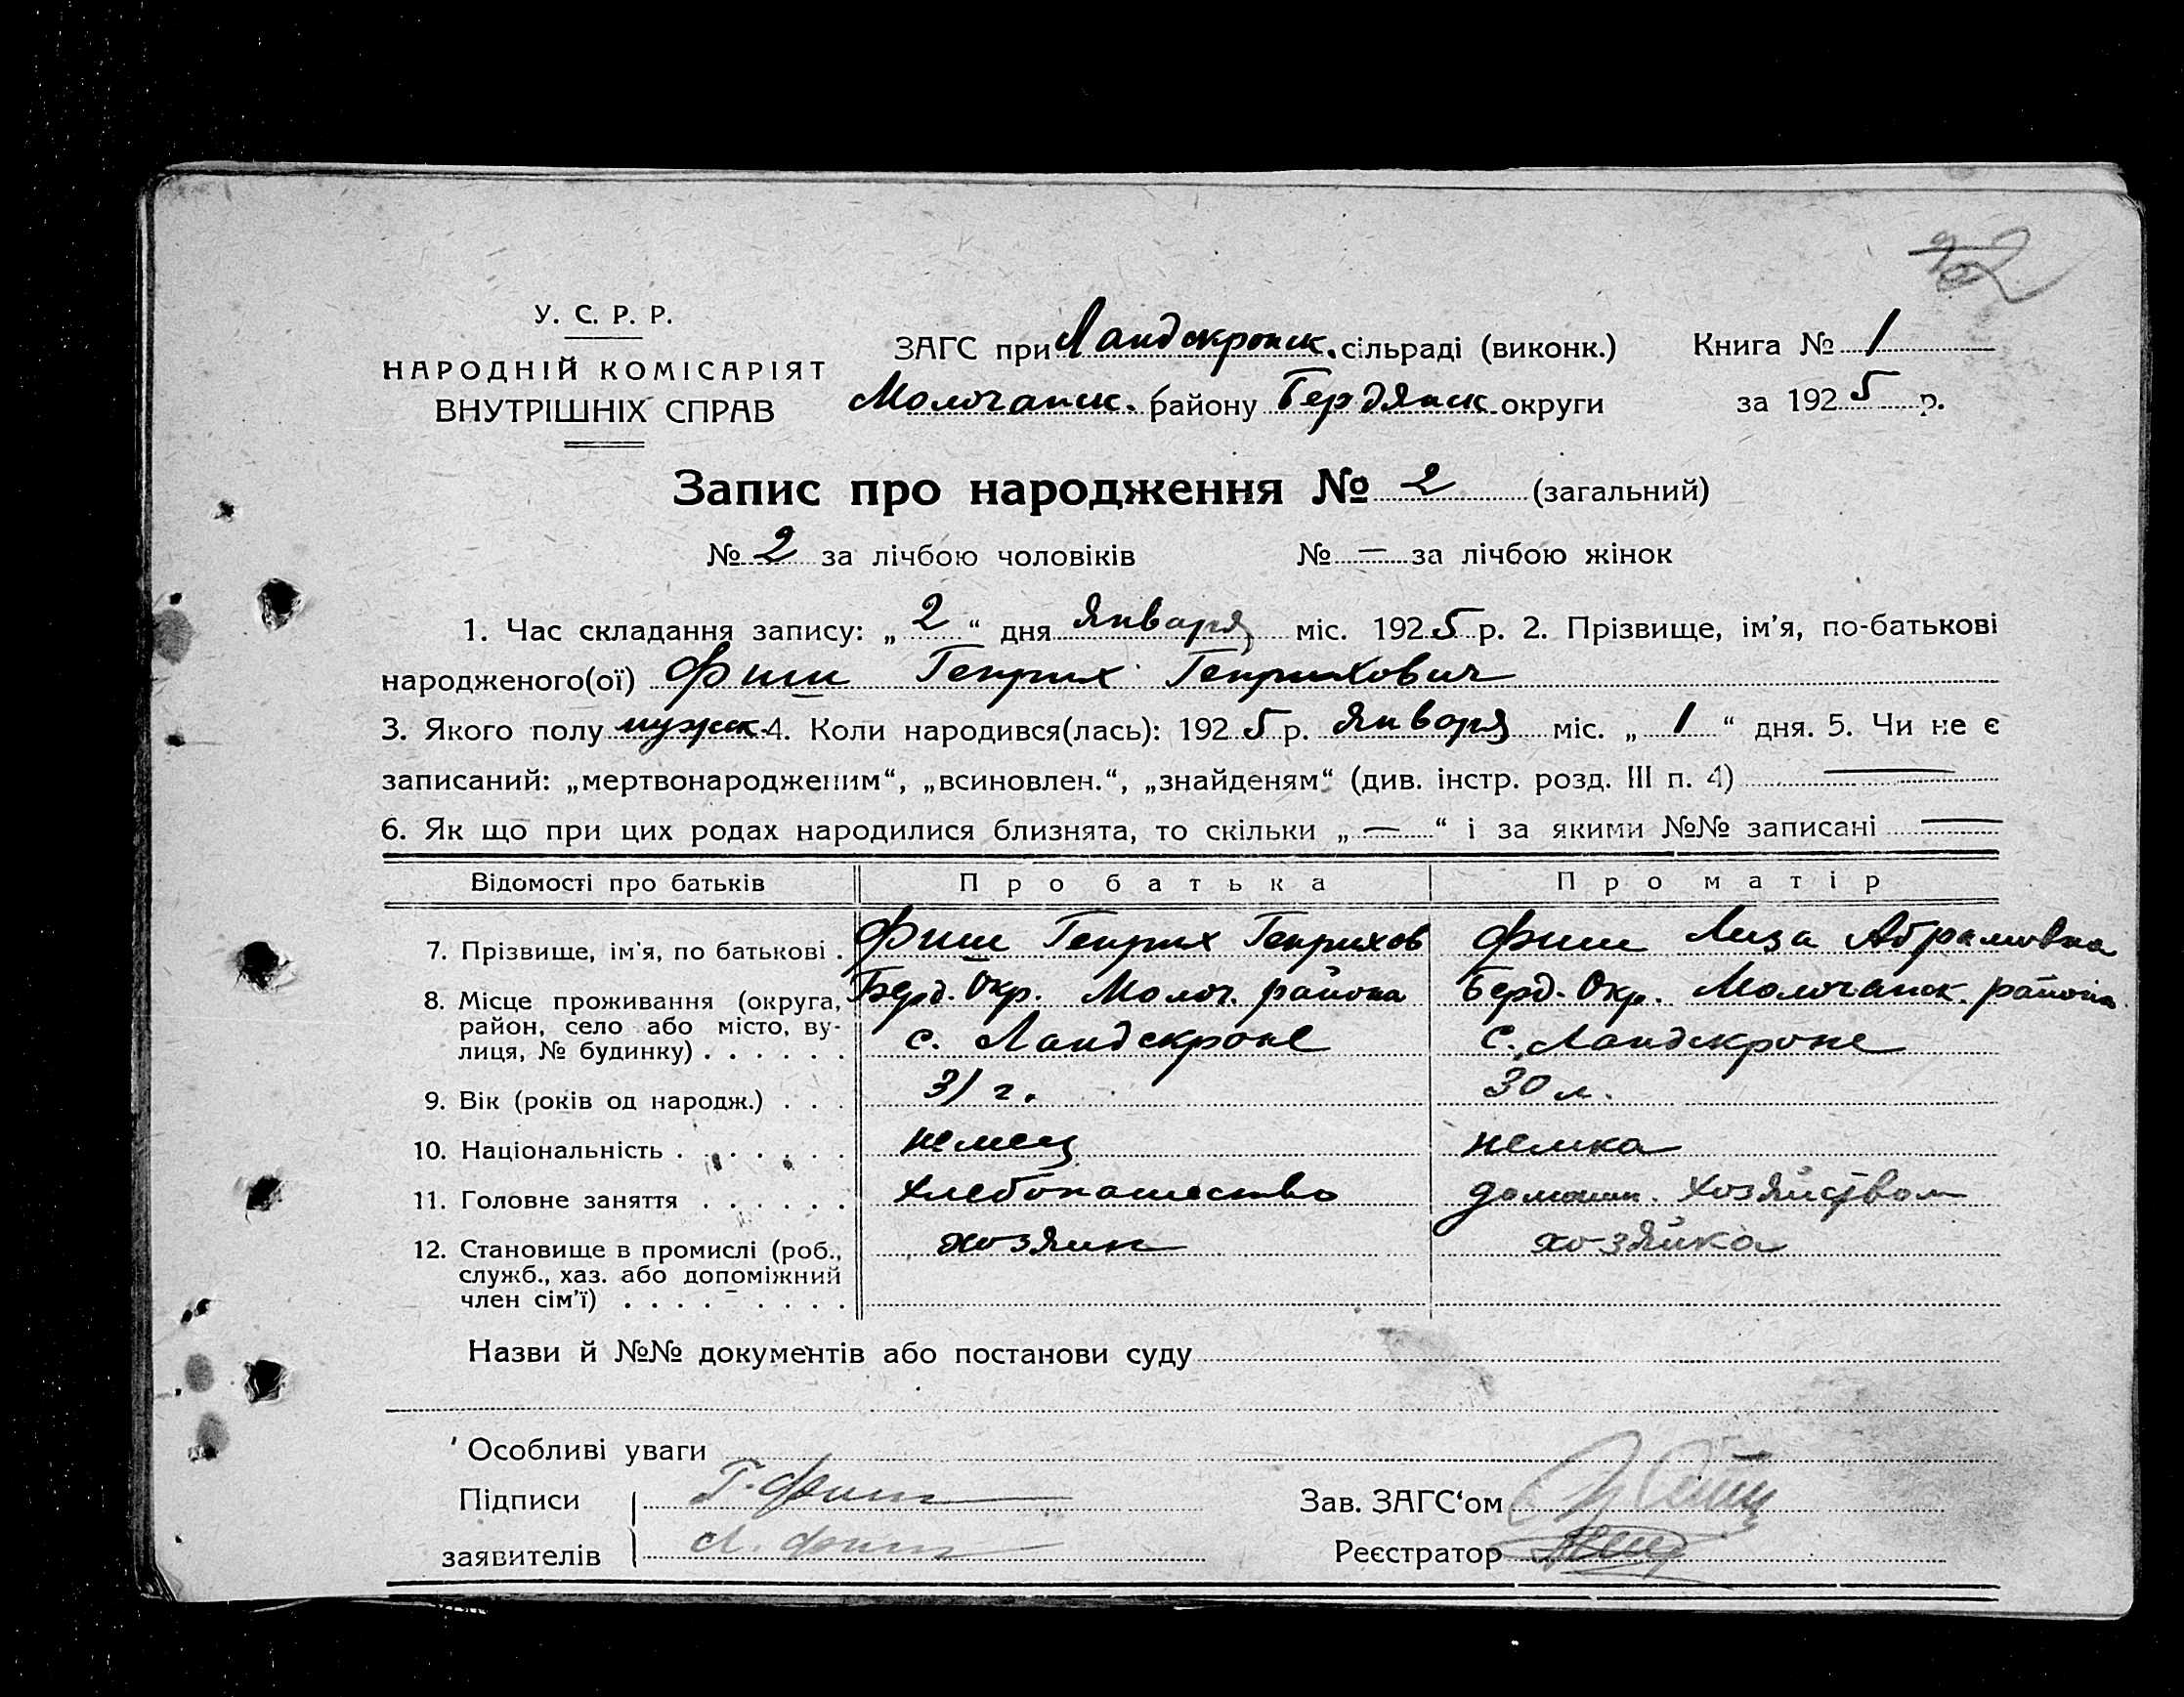 У. С. Р. Р.
НАРОДНІЙ КОМІСАРІЯТ
ВНУТРІШНІХ СПРАВ
ЗАГС при Ландскронск. сільраді (виконк.)
Молочанск. району Бердянск. округи
Книга № 1
за 1925 р.
Запис про народження № 2 (загальний)
№ 2 за лічбою чоловіків № — за лічбою жінок
1. Час складання запису: „2“ дня Января міс. 1925 р. 2. Прізвище, ім'я, по-батькові
народженого(ої) Фиш Генрих Генрихович
3. Якого полу мужск. 4. Коли народився(лась): 1925 р. Января міс. „1“ дня. 5. Чи не є
записаний: „мертвонародженим“, „всиновлен.“, „знайденям“ (див. інстр. розд. III п. 4) —
6. Як що при цих родах народилися близнята, то скільки „—“ і за якими №№ записані —
Відомості про батьків Про батька Про матір
7. Прізвище, ім'я, по батькові . Фиш Генрих Генрихов Фиш Лиза Абрамовна
8. Місце проживання (округа, Берд. Окр. Молоч. района Берд. Окр. Молочанск. района
район, село або місто, ву-
лиця, № будинку) . . . . . . с. Ландскроне с. Ландскроне
9. Вік (років од народж.) . . . 31 г. 30 л.
10. Національність . . . . . . . немец немка
11. Головне заняття . . . . . . хлебопашество домашн. хозяйством
12. Становище в промислі (роб., хозяин хозяйка
служб., хаз. або допоміжний
член сім'ї) . . . . . . . . .
Назви й №№ документів або постанови суду
Особливі уваги
Підписи Г. Фиш Зав. ЗАГС‘ом
заявителів Л. Фиш Реєстратор